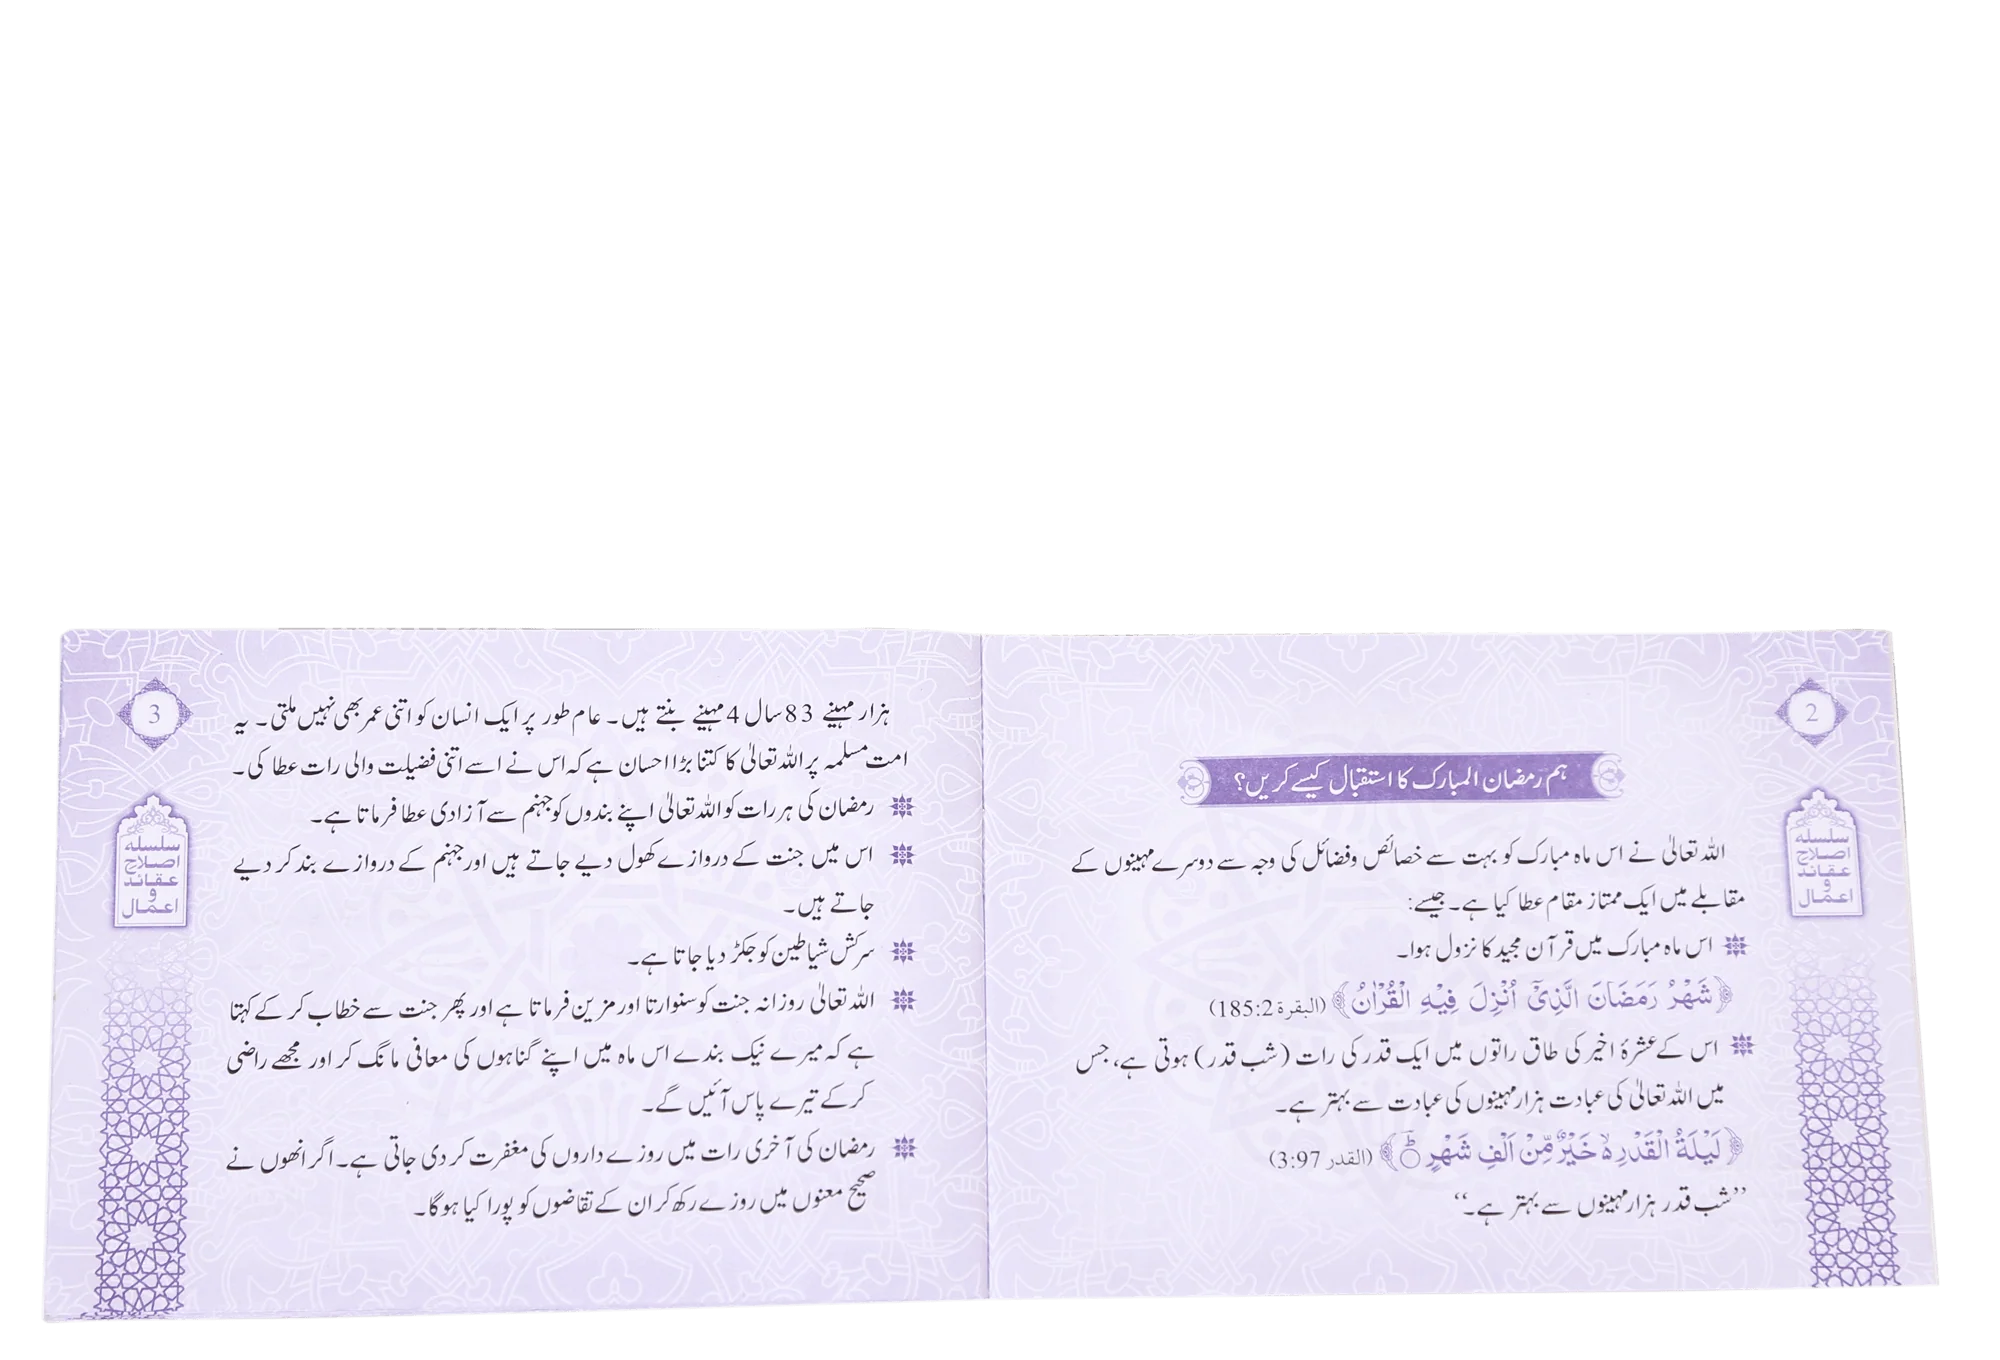 2
سلسلہ
اصلاح
عقائد
و
اعمال
ہم رمضان المبارک کا استقبال کیسے کریں؟
اللہ تعالیٰ نے اس ماہ مبارک کو بہت سے خصائص وفضائل کی وجہ سے دوسرے مہینوں کے
مقابلے میں ایک ممتاز مقام عطا کیا ہے۔ جیسے:
اس ماہ مبارک میں قرآن مجید کا نزول ہوا۔
﴿شَهْرُ رَمَضَانَ الَّذِیْۤ اُنْزِلَ فِیْهِ الْقُرْاٰنُ﴾ (البقرة 185:2)
اس کے عشرۂ اخیر کی طاق راتوں میں ایک قدر کی رات (شب قدر) ہوتی ہے، جس
میں اللہ تعالیٰ کی عبادت ہزار مہینوں کی عبادت سے بہتر ہے۔
﴿لَیْلَةُ الْقَدْرِ ۙ۬ خَیْرٌ مِّنْ اَلْفِ شَهْرٍ ؕ﴾ (القدر 3:97)
’’شب قدر ہزار مہینوں سے بہتر ہے۔‘‘
3
سلسلہ
اصلاح
عقائد
و
اعمال
ہزار مہینے 83 سال 4 مہینے بنتے ہیں۔ عام طور پر ایک انسان کو اتنی عمر بھی نہیں ملتی۔ یہ
امت مسلمہ پر اللہ تعالیٰ کا کتنا بڑا احسان ہے کہ اس نے اسے اتنی فضیلت والی رات عطا کی۔
رمضان کی ہر رات کو اللہ تعالیٰ اپنے بندوں کو جہنم سے آزادی عطا فرماتا ہے۔
اس میں جنت کے دروازے کھول دیے جاتے ہیں اور جہنم کے دروازے بند کر دیے
جاتے ہیں۔
سرکش شیاطین کو جکڑ دیا جاتا ہے۔
اللہ تعالیٰ روزانہ جنت کو سنوارتا اور مزین فرماتا ہے اور پھر جنت سے خطاب کر کے کہتا
ہے کہ میرے نیک بندے اس ماہ میں اپنے گناہوں کی معافی مانگ کر اور مجھے راضی
کر کے تیرے پاس آئیں گے۔
رمضان کی آخری رات میں روزے داروں کی مغفرت کر دی جاتی ہے۔ اگر انھوں نے
صحیح معنوں میں روزے رکھ کر ان کے تقاضوں کو پورا کیا ہوگا۔